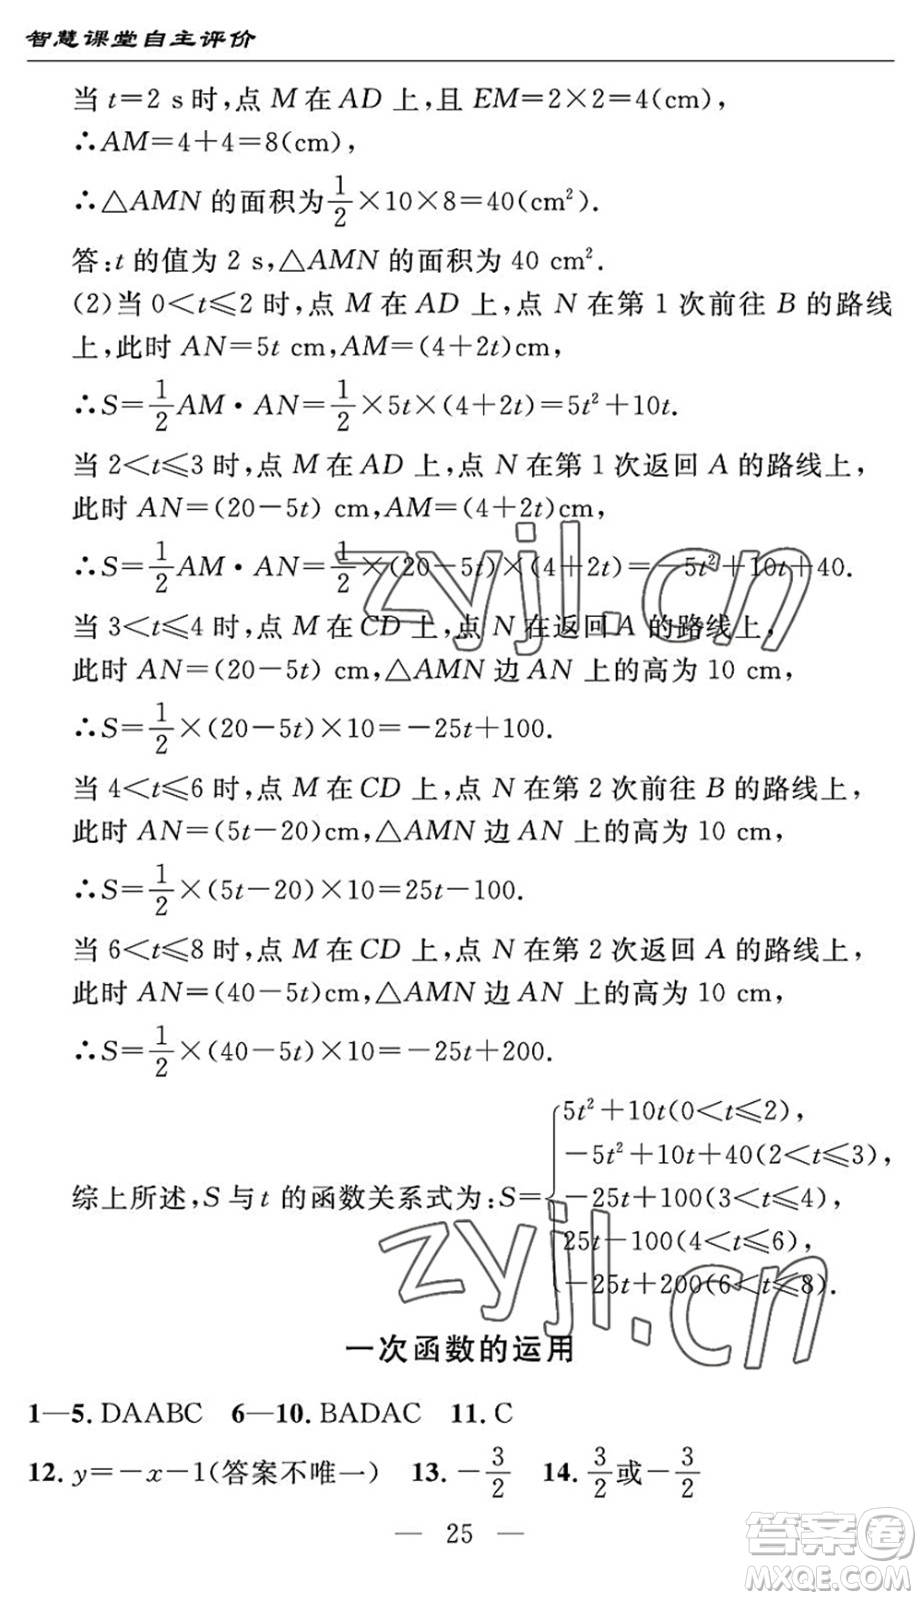 智慧课堂自主评价
当 t=2 s时,点 M 在 AD 上,且 EM=2×2=4(cm),
∴AM=4+4=8(cm),
∴△AMN 的面积为1/2×10×8=40(cm²).
答:t 的值为 2 s,△AMN 的面积为 40 cm².
(2)当 0<t≤2 时,点 M 在 AD 上,点 N 在第 1 次前往 B 的路线
上,此时 AN=5t cm,AM=(4+2t)cm,
∴S=1/2AM·AN=1/2×5t×(4+2t)=5t²+10t.
当 2<t≤3 时,点 M 在 AD 上,点 N 在第 1 次返回 A 的路线上,
此时 AN=(20-5t) cm,AM=(4+2t)cm,
∴S=1/2AM·AN=1/2×(20-5t)×(4+2t)=-5t²+10t+40.
当 3<t≤4 时,点 M 在 CD 上,点 N 在返回 A 的路线上,
此时 AN=(20-5t)cm,△AMN 边 AN 上的高为 10 cm,
∴S=1/2×(20-5t)×10=-25t+100.
当 4<t≤6 时,点 M 在 CD 上,点 N 在第 2 次前往 B 的路线上,
此时 AN=(5t-20)cm,△AMN 边 AN 上的高为 10 cm,
∴S=1/2×(5t-20)×10=25t-100.
当 6<t≤8 时,点 M 在 CD 上,点 N 在第 2 次返回 A 的路线上,
此时 AN=(40-5t)cm,△AMN 边 AN 上的高为 10 cm,
∴S=1/2×(40-5t)×10=-25t+200.
综上所述,S 与 t 的函数关系式为:S={5t²+10t(0<t≤2),
-5t²+10t+40(2<t≤3),
-25t+100(3<t≤4),
25t-100(4<t≤6),
-25t+200(6<t≤8).
一次函数的运用
1—5. DAABC 6—10. BADAC 11. C
12. y=-x-1(答案不唯一) 13. -3/2 14. 3/2或-3/2
— 25 —
zyjl.cn
zyjl.cn
答案卷
MXQE.COM